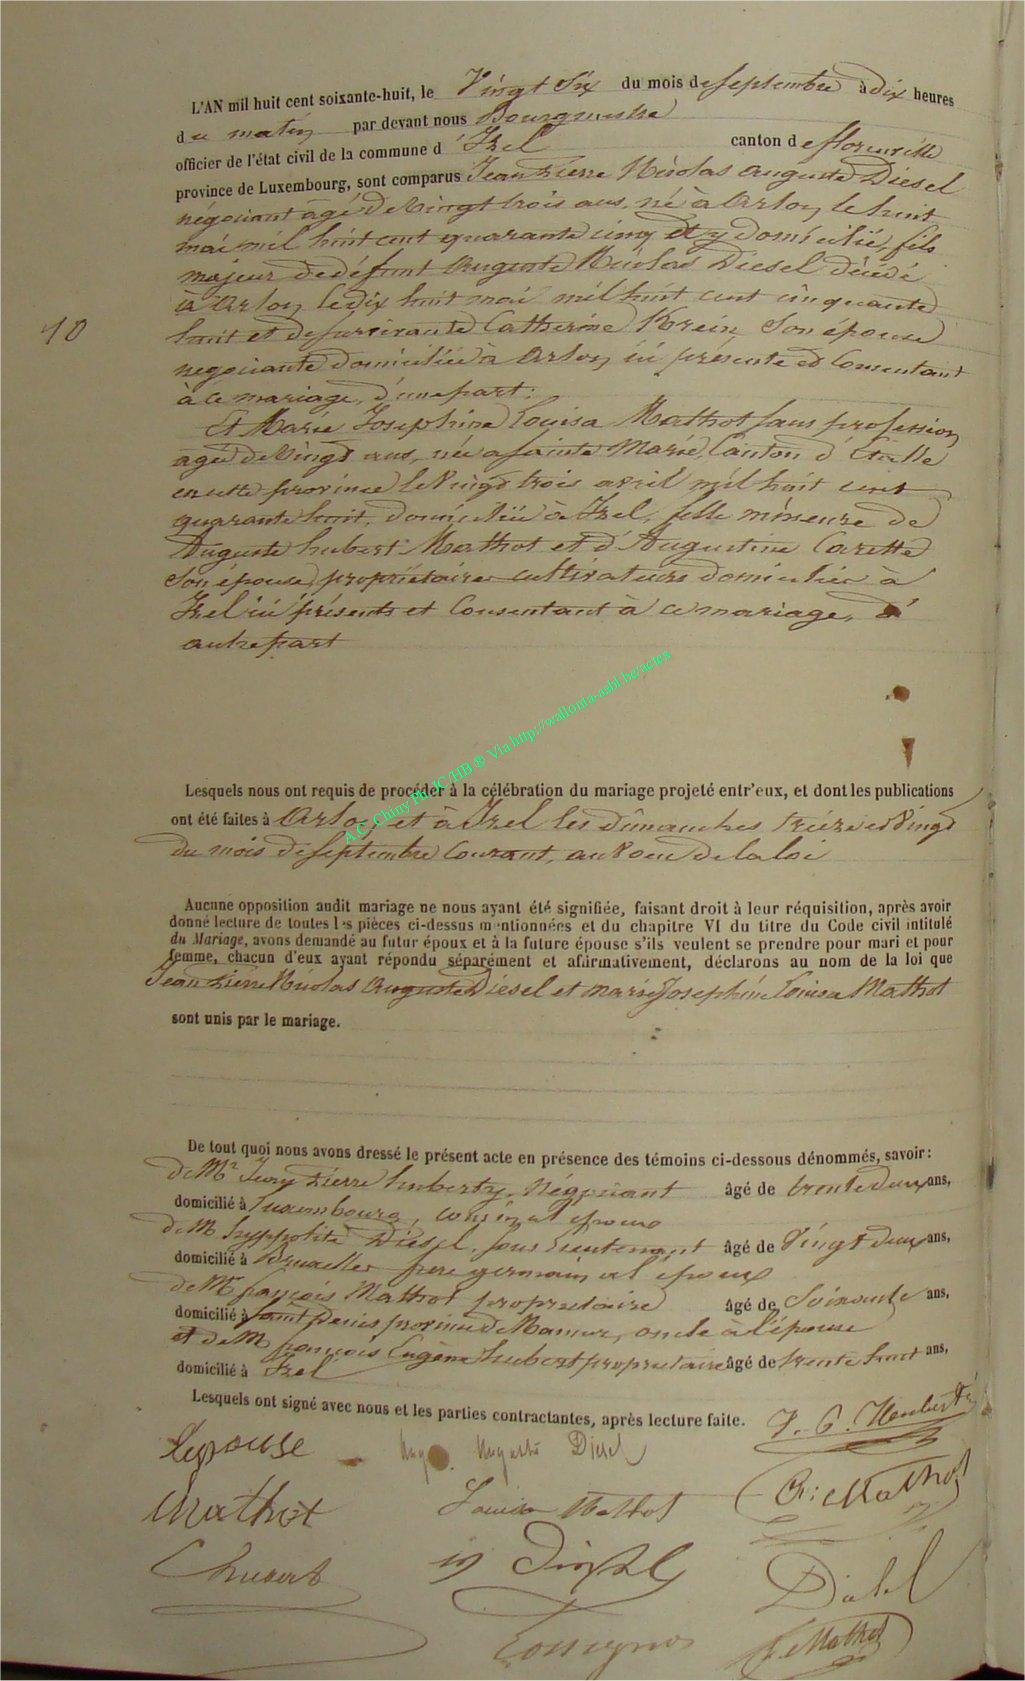 L'AN mil huit cent soixante-huit, le Vingt Six du mois de septembre à dix heures
du matin par devant nous Bourgmestre
officier de l'état civil de la commune d'Izel canton de florenville
province de Luxembourg, sont comparus Jean Pierre Nicolas Auguste Diesel
négociant âgé de Vingt trois ans, né à Arlon le huit
mai mil huit cent quarante cinq et y domicilié, fils
majeur de défunt Auguste Nicolas Diesel décédé
à Arlon le dix huit mai mil huit cent cinquante
huit et de survivante Catherine Krein, Son épouse
négociante domiciliée à Arlon ici présente et Consentant
à ce mariage, d'une part;
10
Et Marie Josephine Louisa Mathot sans profession
agée de Vingt ans, née a sainte Marie, Canton d'Etalle
en cette province le Vingt trois avril mil huit cent
quarante huit, domiciliée à Izel, fille mineure de
Auguste hubert Mathot et d'Augustine Carette
Son épouse, propriétaires cultivateurs domiciliés à
Izel ici présents et Consentant à ce mariage, d'
autre part
A.C. Chiny Ph. JC/HB ® Via http://wallonia-asbl.be/actes
Lesquels nous ont requis de procéder à la célébration du mariage projeté entr'eux, et dont les publications
ont été faites à Arlon et à Izel les dimanches treize et Vingt
du mois de septembre Courant, au Voeu de la loi
Aucune opposition audit mariage ne nous ayant été signifiée, faisant droit à leur réquisition, après avoir
donné lecture de toutes les pièces ci-dessus mentionnées et du chapitre VI du titre du Code civil intitulé
du Mariage, avons demandé au futur époux et à la future épouse s'ils veulent se prendre pour mari et pour
femme, chacun d'eux ayant répondu séparément et affirmativement, déclarons au nom de la loi que
Jean Pierre Nicolas Auguste Diesel et Marie Josephine Louisa Mathot
sont unis par le mariage.
De tout quoi nous avons dressé le présent acte en présence des témoins ci-dessous dénommés, savoir:
de Mr Pierre huberty, Négociant âgé de trente deux ans,
domicilié à Luxembourg, cousin al époux
de M hyppolite Diesel, sous lieutenant âgé de Vingt deux ans,
domicilié à Bruxelles frere germain al époux
de Mr françois Mathot proprietaire âgé de Soixante ans,
domicilié à saint Denis province de Namur, oncle à l'épouse
et de M françois Eugène hubert proprietaire âgé de trente huit ans,
domicilié à Izel
Lesquels ont signé avec nous et les parties contractantes, après lecture faite.
Auguste Diesel
Mathot Louisa Mathot Mathot
Diesel
F. Mathot